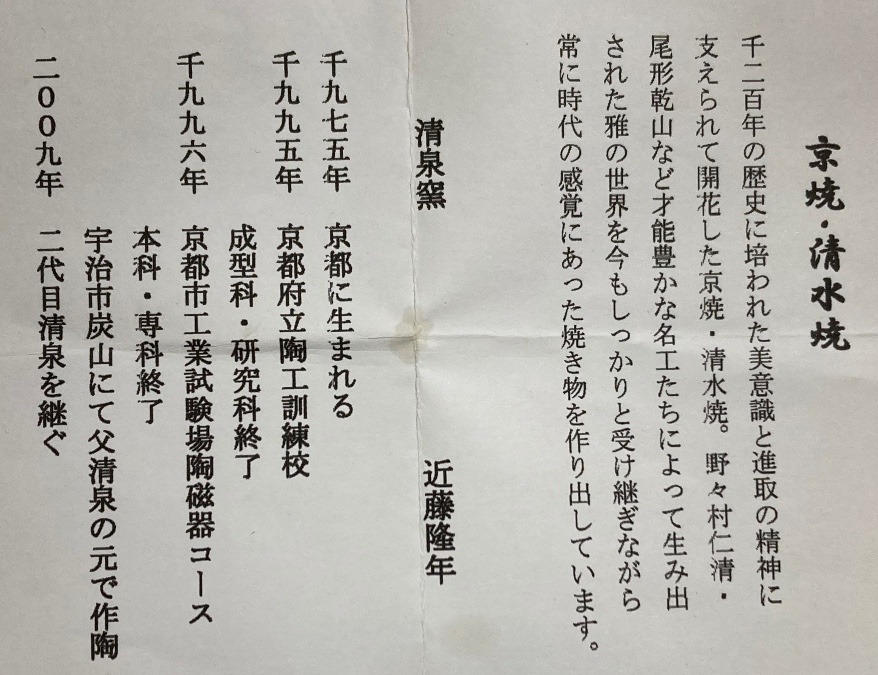 京焼・清水焼
千二百年の歴史に培われた美意識と進取の精神に
支えられて開花した京焼・清水焼。野々村仁清・
尾形乾山など才能豊かな名工たちによって生み出
された雅の世界を今もしっかりと受け継ぎながら
常に時代の感覚にあった焼き物を作り出しています。
清泉窯　近藤隆年
千九七五年　京都に生まれる
千九九五年　京都府立陶工訓練校
成型科・研究科終了
千九九六年　京都市工業試験場陶磁器コース
本科・専科終了
宇治市炭山にて父清泉の元で作陶
二00九年　二代目清泉を継ぐ